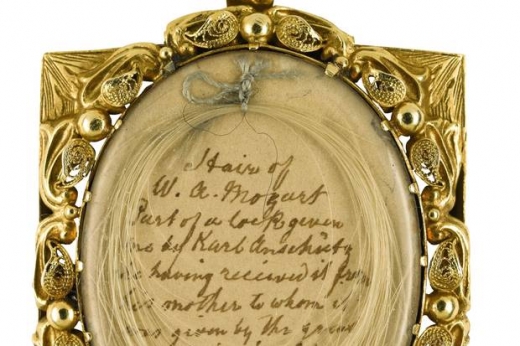 Hair of
W. A. Mozart
Part of a lock given
me by Karl Anschütz
he having received it from
his mother to whom it
was given by the